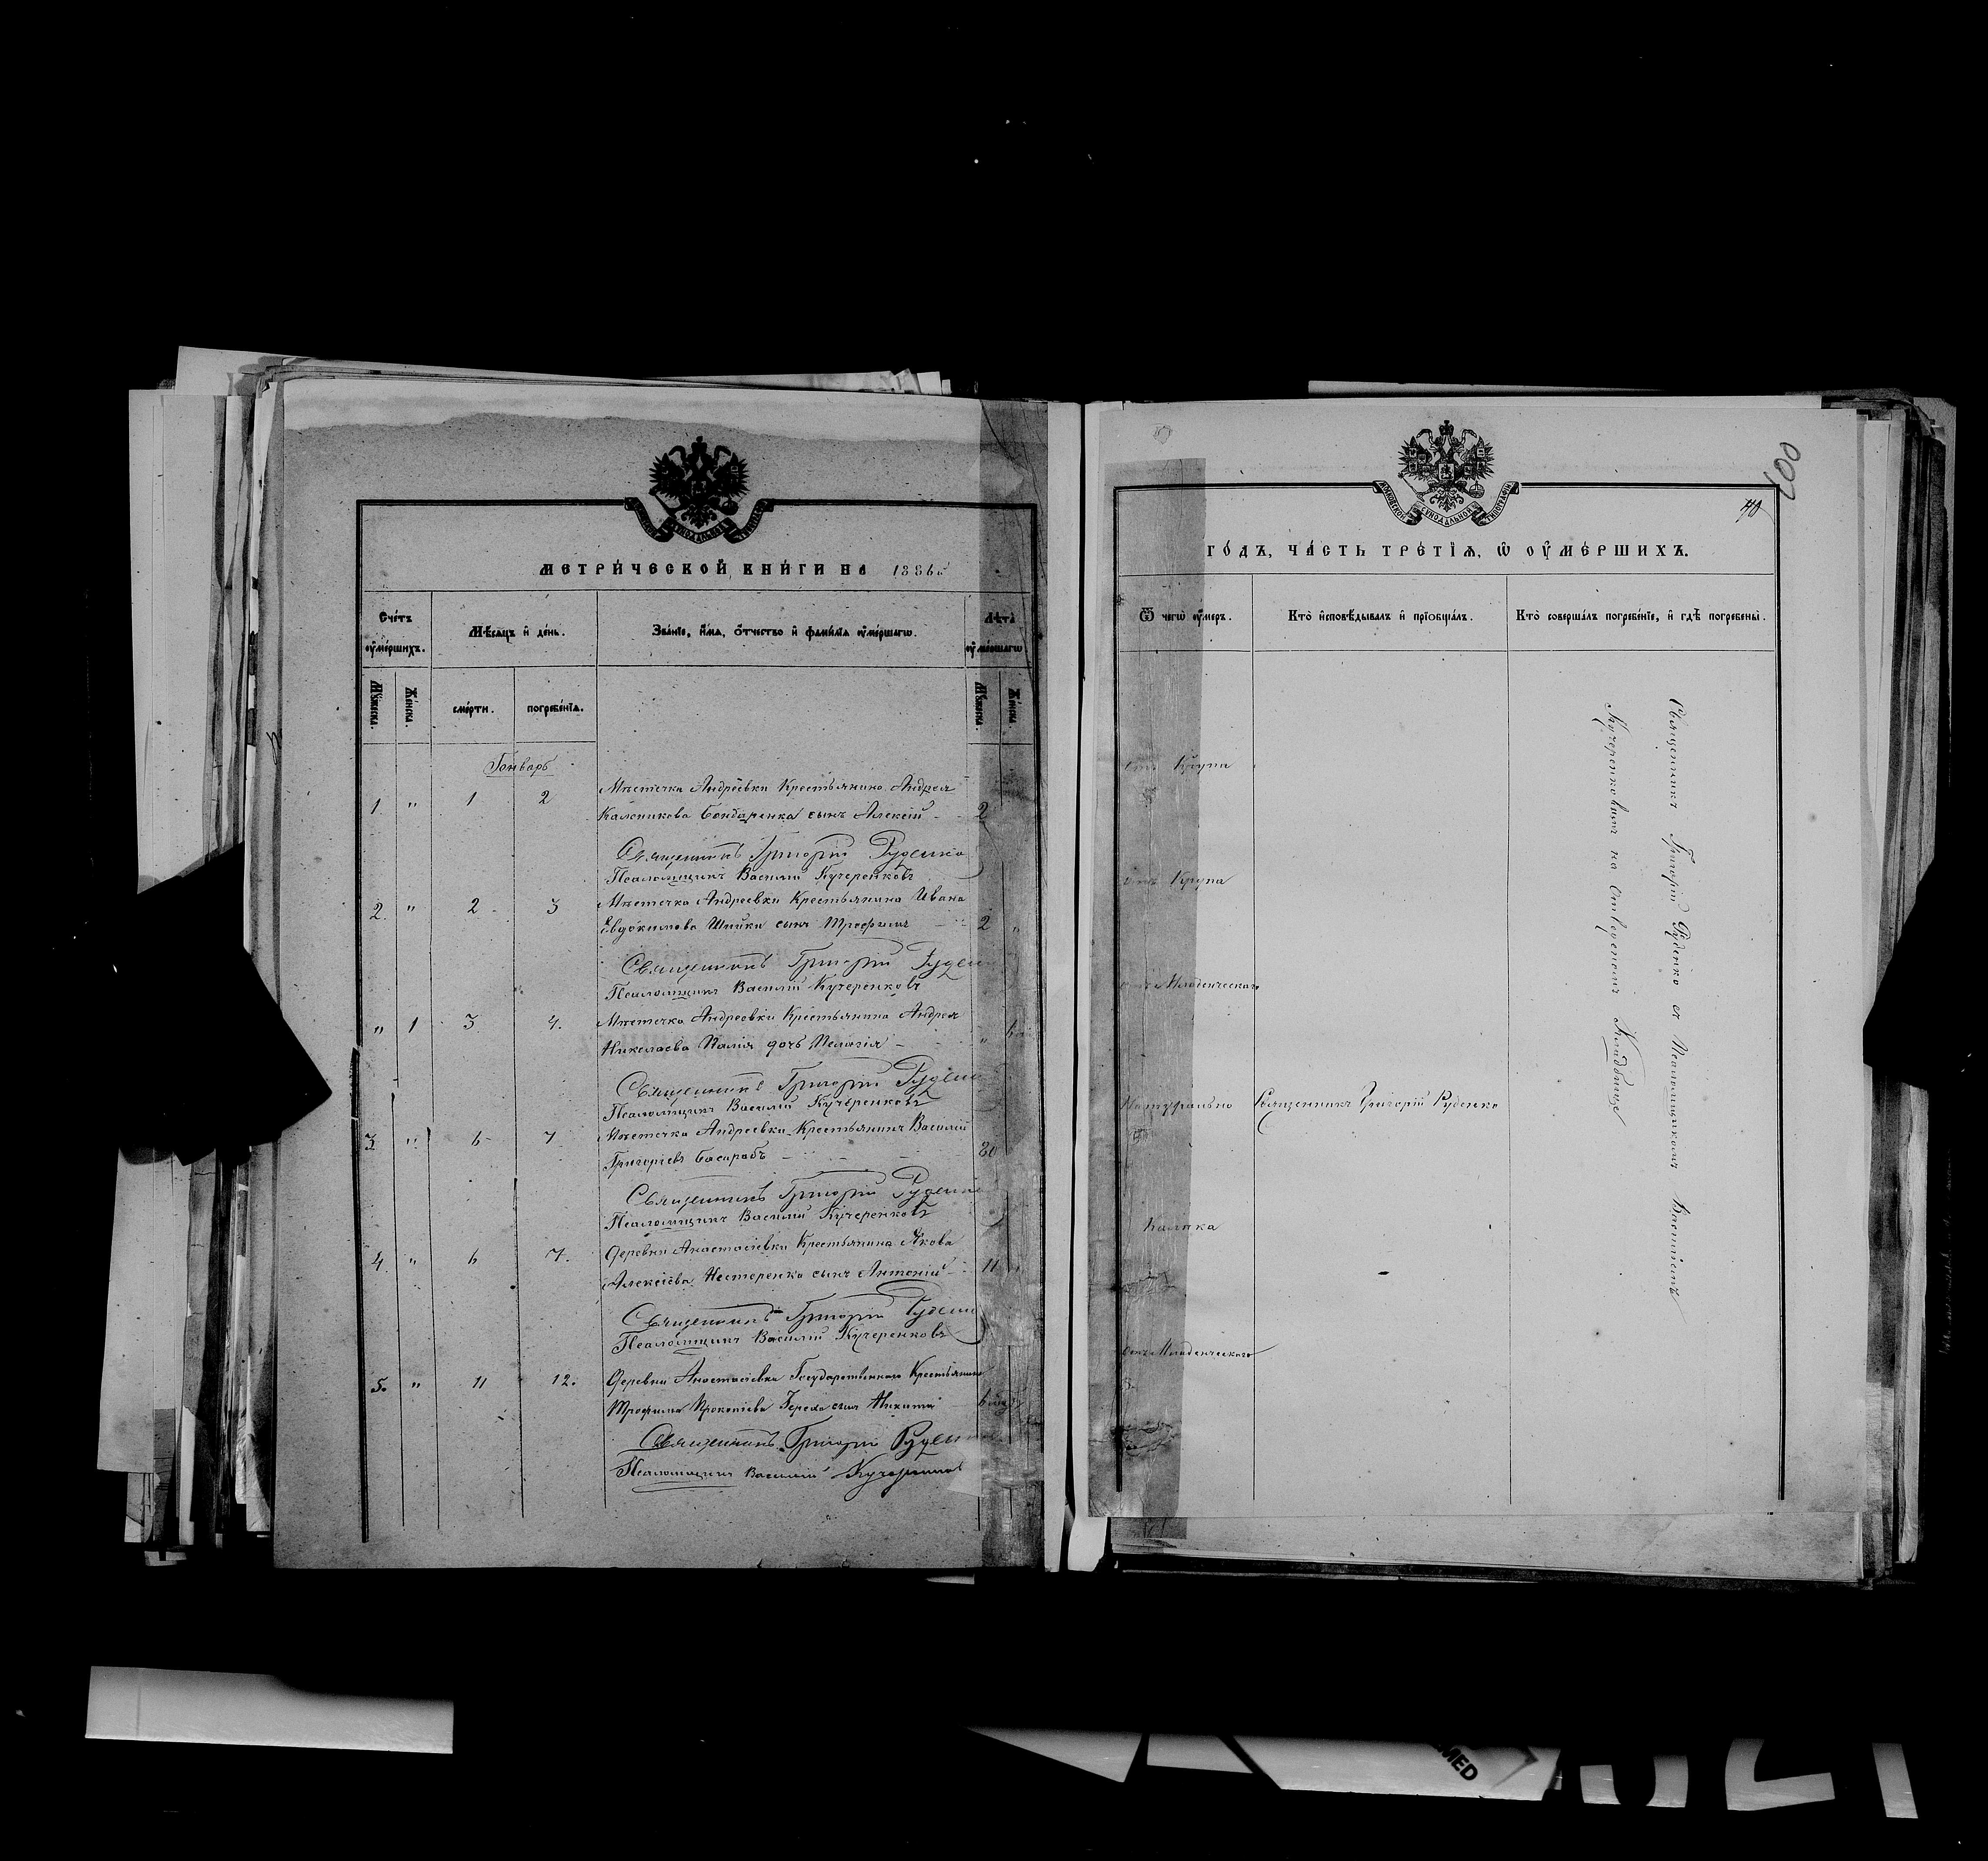 МЕТРИ́ЧЕСКОЙ КНИ́ГИ НА 1886й
Сче́тъ ᲂу҆ме́ршихъ.
Мѣ́сѧцъ и҆ де́нь.
Зва́нїе, и҆́мѧ, ѻ҆́тчество и҆ фамилїѧ ᲂу҆ме́ршагѡ.
Лѣ́та ᲂу҆ме́ршагѡ
Мꙋ́жеска.
Же́нска.
сме́рти.
погребе́нїѧ.
Мꙋ́жеска.
Же́нска
Январь
1 " 1 2 Мѣстечка Андреевки Крестьянина Андрея
Калиникова Бондаренка сынъ Алексій 2
Священникъ Григорій Руденко
Псаломщикъ Василій Кучеренковъ
2. " 2 3 Мѣстечка Андреевки Крестьянина Ивана
Евдокимова Шийки сынъ Трофимъ 2 "
Священникъ Григорій Руденко
Псаломщикъ Василій Кучеренковъ
" 1 3 4. Мѣстечка Андреевки Крестьянина Андрея
Николаева Палія дочь Пелагія "
Священникъ Григорій Руденко
Псаломщикъ Василій Кучеренковъ
3. " 6 7 Мѣстечка Андреевки Крестьянинъ Василій
Григоріевъ Басарабъ 80
Священникъ Григорій Руденко
Псаломщикъ Василій Кучеренковъ
4. " 6 7. Деревни Анастасіевки Крестьянина Якова
Алексіева Нестеренка сынъ Антоній 11 "
Священникъ Григорій Руденко
Псаломщикъ Василій Кучеренковъ
5. " 11 12. Деревни Анастасіевки Государственнаго Крестьянина
Трофима Прокопіева сынъ Никита
Священникъ Григорій Руденко
Псаломщикъ Василій Кучеренковъ
МОСКОВСКОЙ СѴНОДАЛЬНОЙ ТИПОГРАФІИ
400
40
ГО́ДЪ, ЧА́СТЬ ТРЕ́ТЇѦ, Ѡ҆ ОУ҆МЕ́РШИХЪ.
Ѿ чегѡ̀ ᲂу҆́меръ.
Кто̀ и҆сповѣ́дывалъ и҆ прїѡбща́лъ.
Кто̀ соверша́лъ погребе́нїе, и҆ гдѣ̀ погребены̀.
отъ Крупа
отъ Крупа
отъ Младенческаго
Натурально Священникъ Григорій Руденко
Кашлка
отъ Младенческаго
Священникъ Григорій Руденко съ Псаломщикомъ Василіемъ
Кучеренковымъ на отведеномъ Кладбище
MED